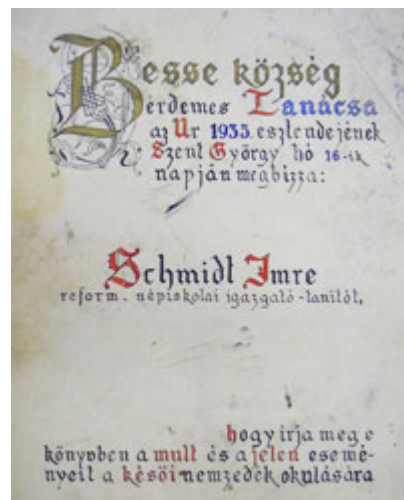 Besse község
érdemes Tanácsa
az Úr 1935. esztendejének
Szent György hó 16-ik
napján megbizza:
Schmidt Imre
reform. népiskolai igazgató-tanítót,
hogy irja meg e
könyvben a mult és a jelen esemé-
nyeit a késői nemzedék okulására